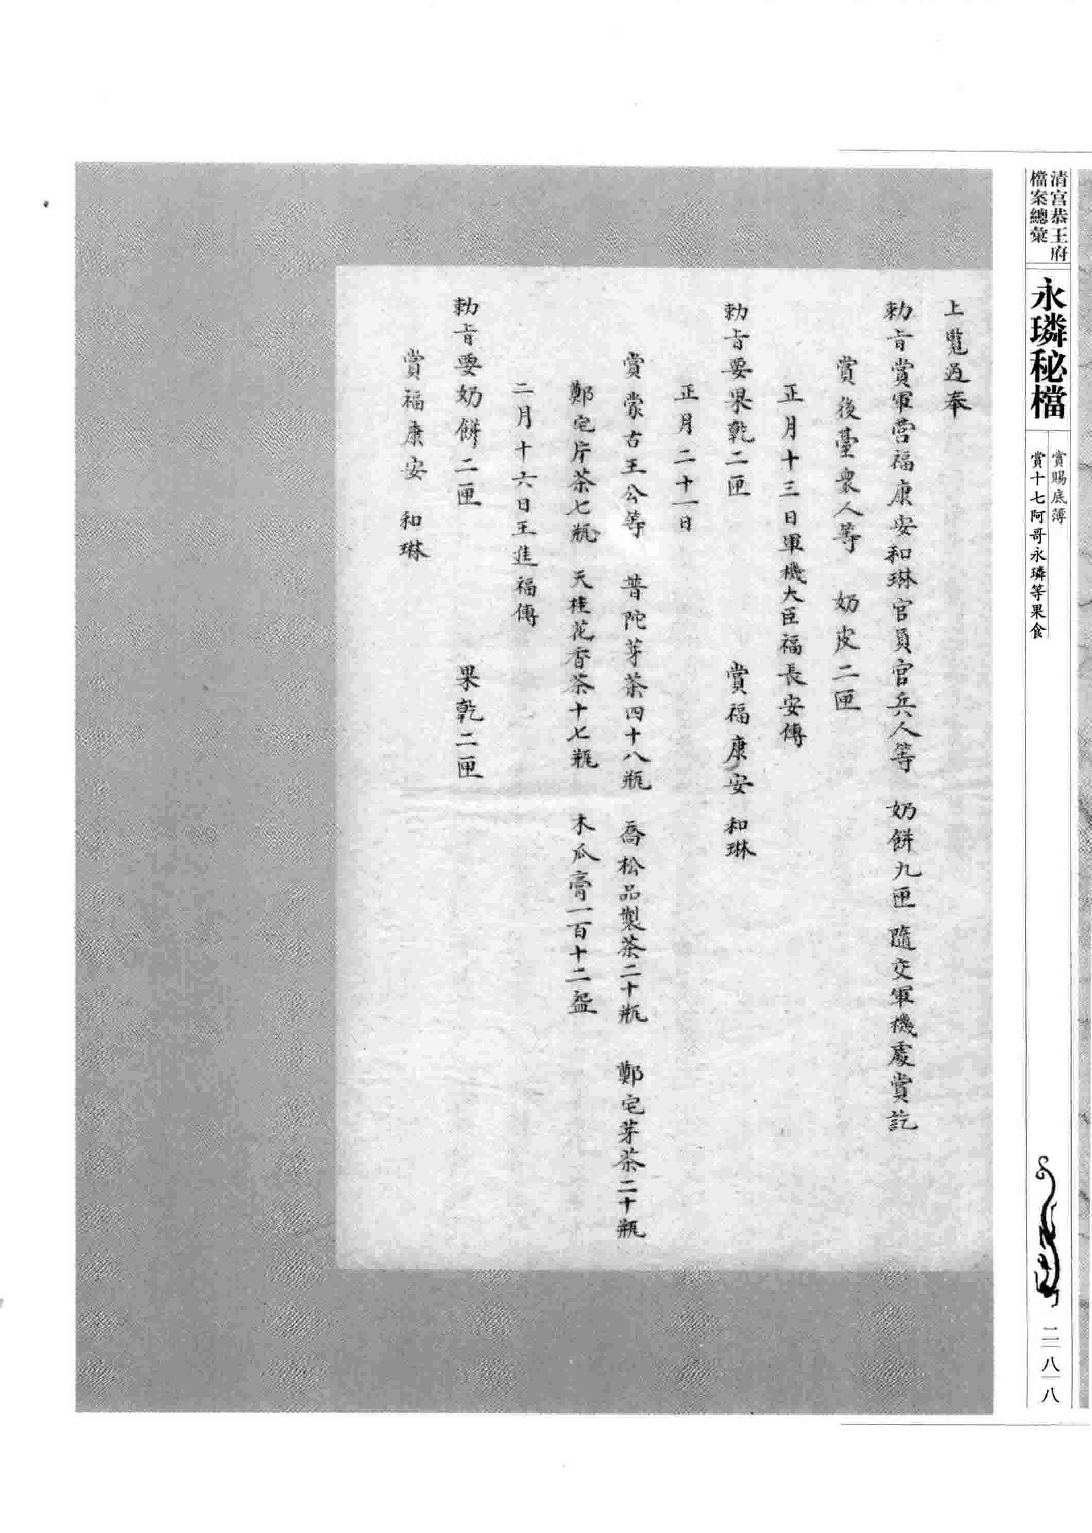 清宮恭王府
檔案總彙
永璘秘檔
賞賜底簿
賞十七阿哥永璘等果食
二八八
上覽過奉
勅旨賞軍營福康安和琳官員官兵人等 奶餅九匣 隨交軍機處賞訖
賞後臺衆人等 奶皮二匣
正月十三日軍機大臣福長安傳
勅旨要果乾二匣 賞福康安 和琳
正月二十一日
賞蒙古王公等 普陀芽茶四十八瓶 喬松品製茶二十瓶 鄭宅芽茶二十瓶
鄭宅片茶七瓶 天桂花香茶十七瓶 木瓜膏一百十二盔
二月十六日王進福傳
勅旨要奶餅二匣 果乾二匣
賞福康安 和琳